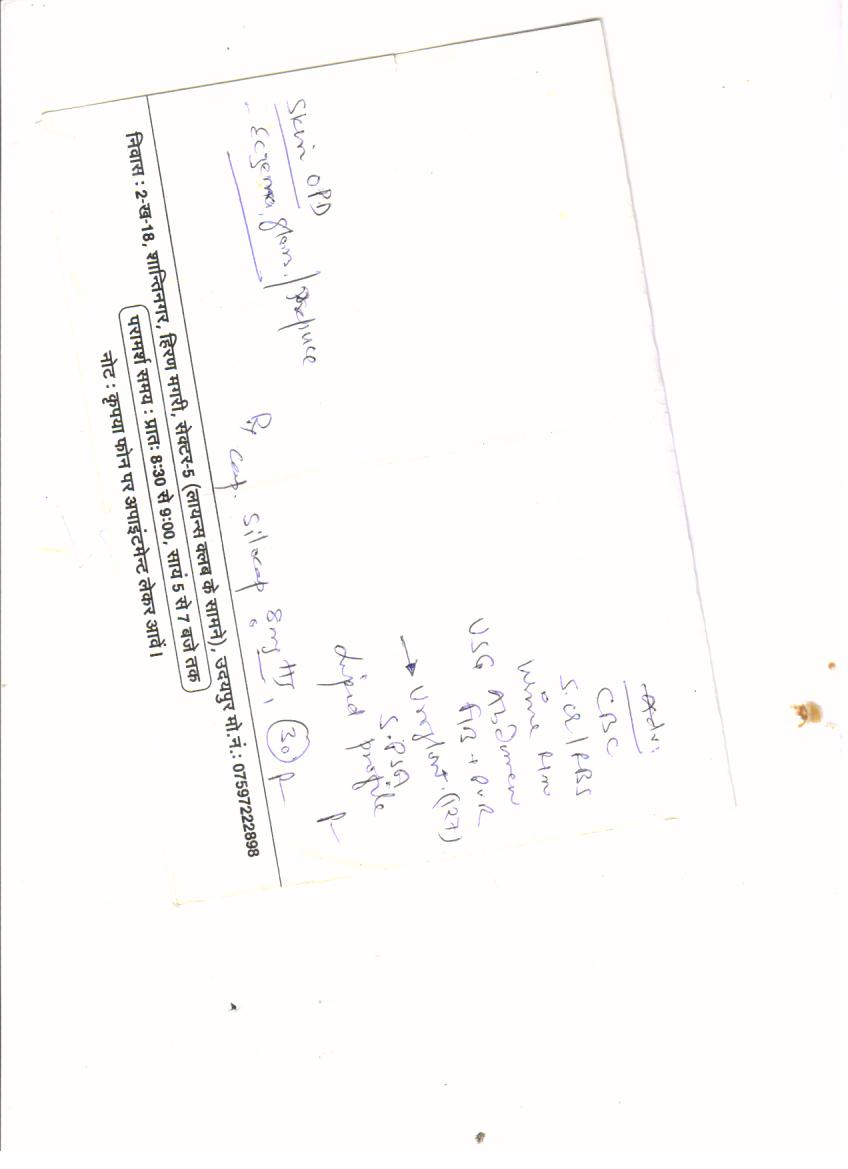 Adv:
CBC
S.Cr/RBS
Urine
USG Abdomen
+ PVR
→ Uroflow. (127)
S.PSA
Lipid profile
Skin OPD
- Eczema, glans/prepuce
Rx Cap. Silocap 8mg HS, (30)
निवास : 2-ख-18, शान्तिनगर, हिरण मगरी, सेक्टर-5 (लायन्स क्लब के सामने), उदयपुर मो.नं.: 07597222898
परामर्श समय : प्रातः 8:30 से 9:00, सायं 5 से 7 बजे तक
नोट : कृपया फोन पर अपाइंटमेन्ट लेकर आवें।